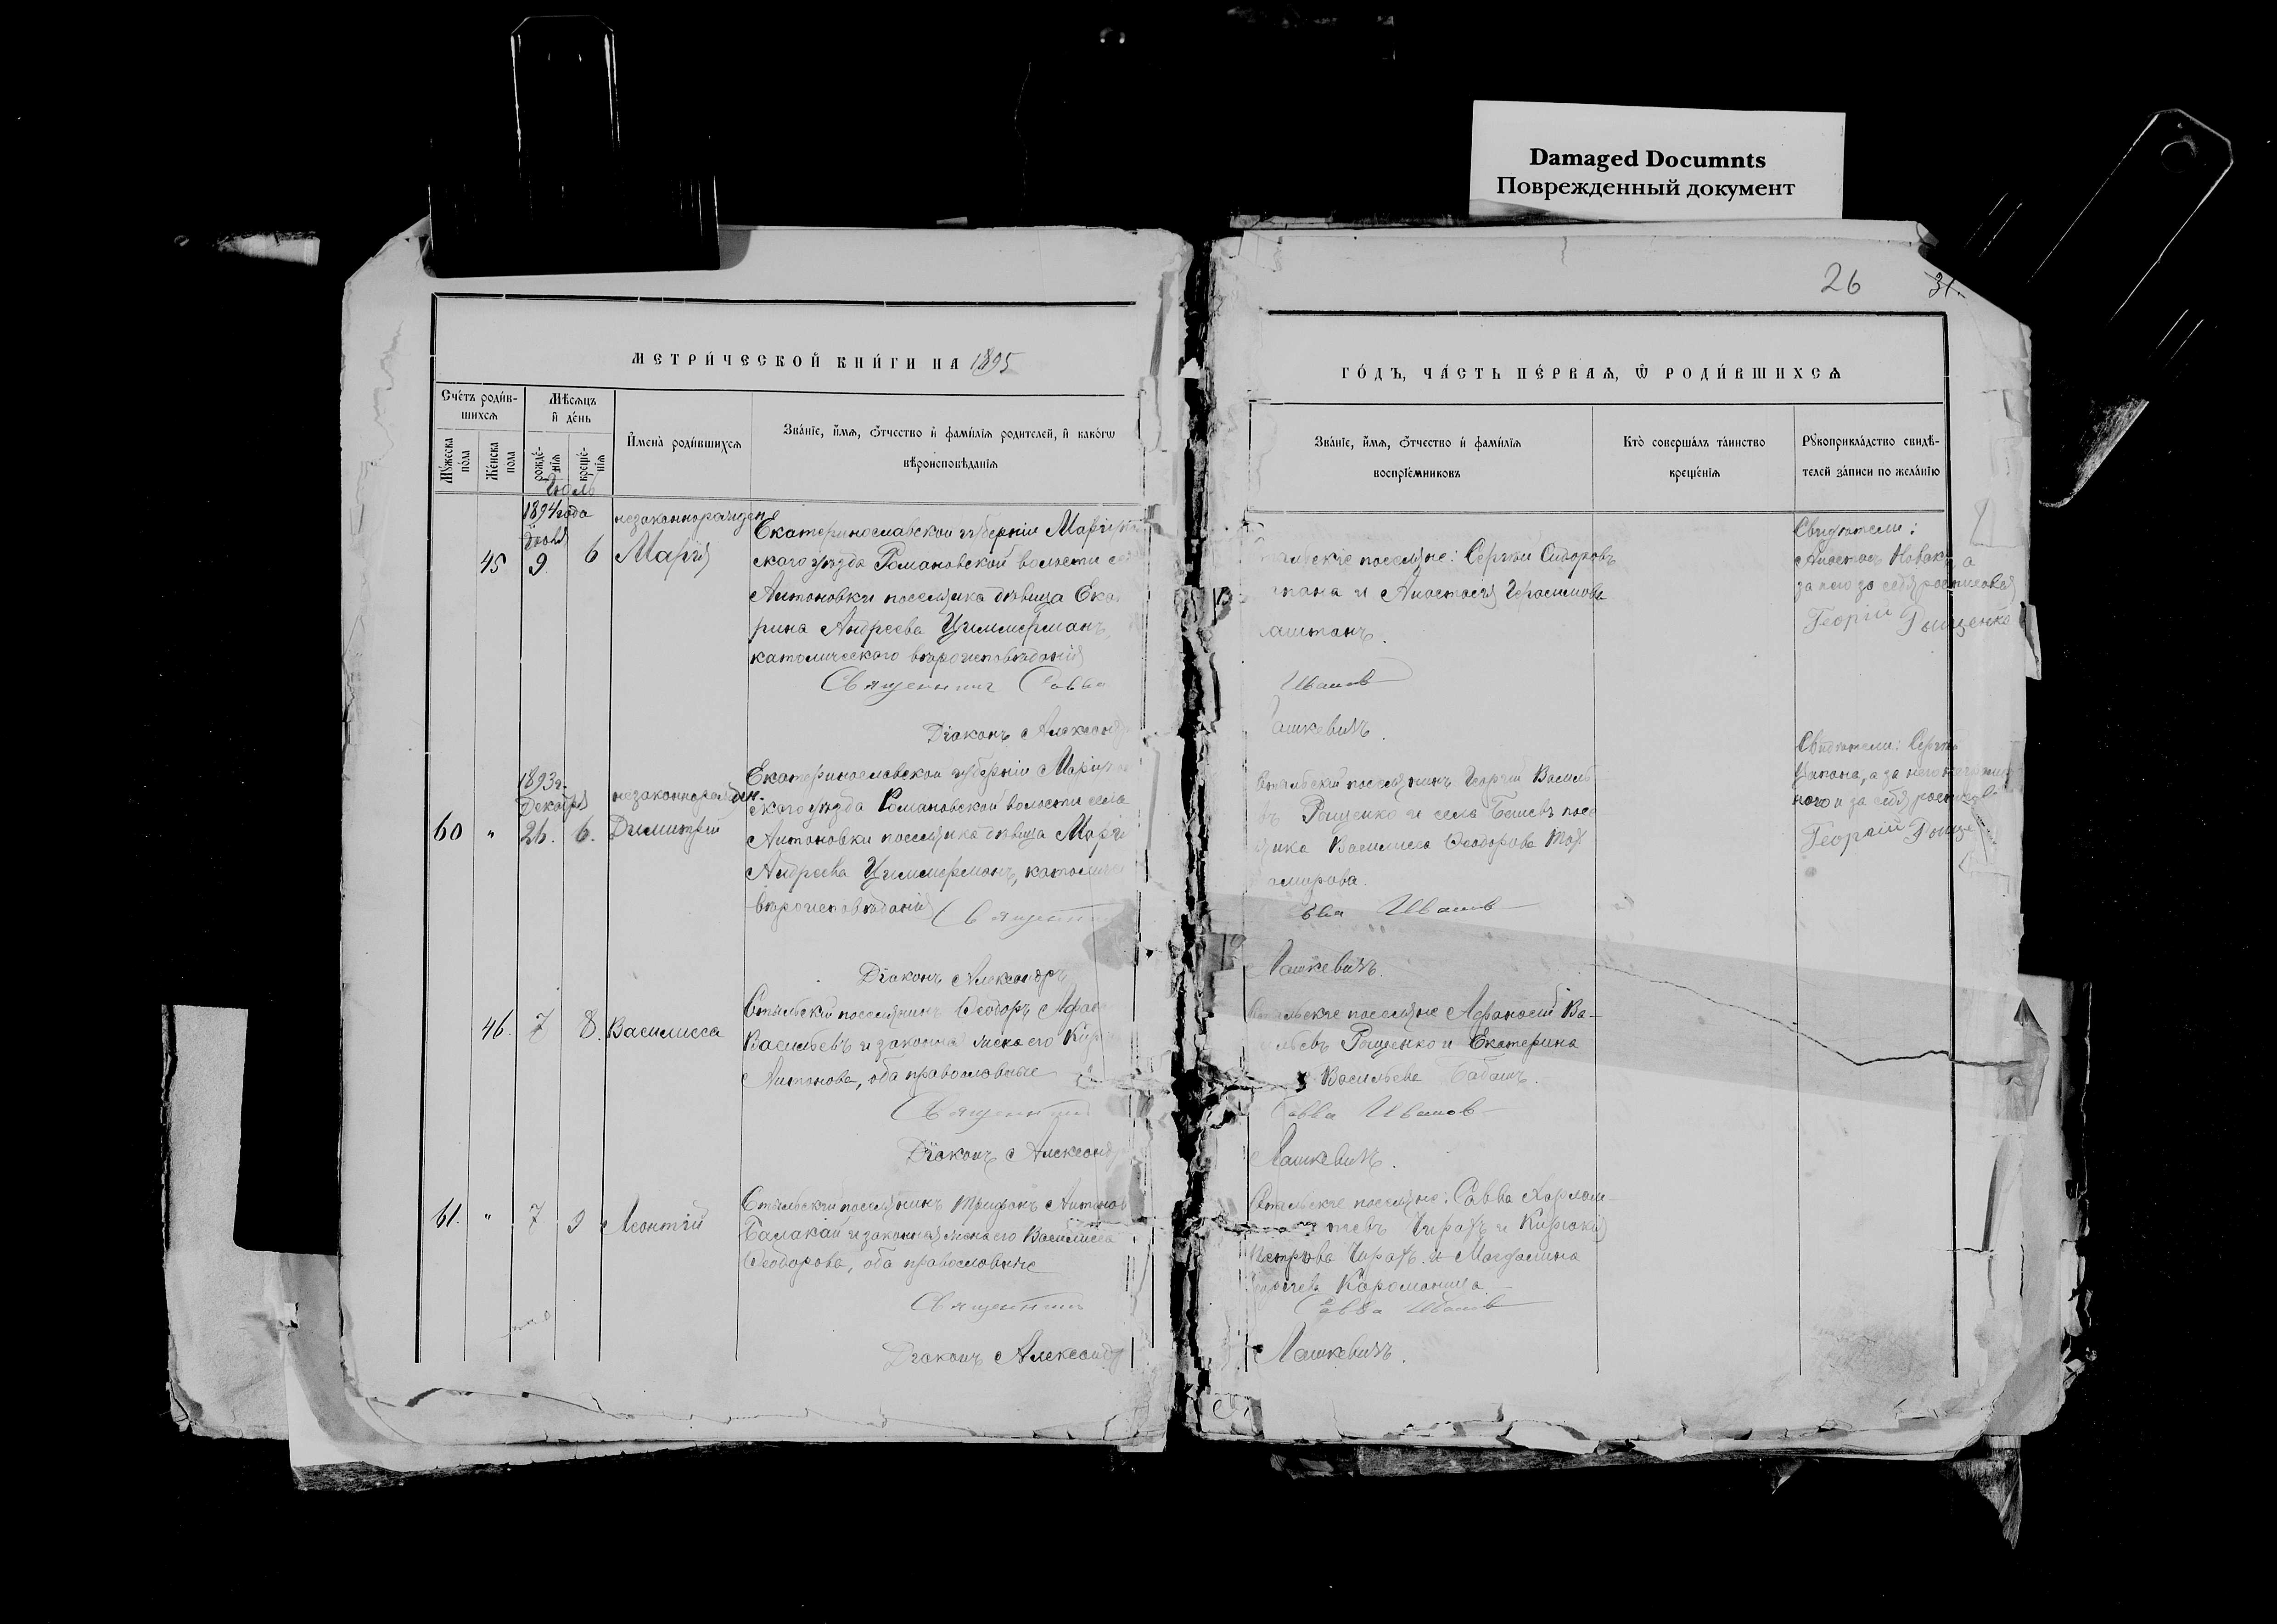 Damaged Documnts
Поврежденный документ
26
31
МЕТРИ́ЧЕСКОЙ КНИ́ГИ НА 1895
ГО́ДЪ, ЧА́СТЬ ПЕ́РВАѦ, Ѿ РОДИ́ВШИХСѦ
Сче́тъ роди́в-
шихсѧ
Мѣ́сѧцъ
и҆ де́нь
Мꙋ́жеска
по́ла
Же́нска
пола
рожде́-
нїѧ
креще́-
нїѧ
И҆мена̀ роди́вшихсѧ
Зва́нїе, и҆́мѧ, ѻ҆́тчество и҆ фами́лїѧ родителей, и҆ како́гѡ
вѣроисповѣ́данїѧ
Зва́нїе, и҆́мѧ, ѻ҆́тчество и҆ фами́лїѧ
воспрїе́мниковъ
Кто̀ соверша́лъ та́инство
креще́нїѧ
Рꙋкоприкла́дство свидѣ́-
телей за́писи по жела́нїю
Іюль
1894 года
Іюля
45 9 6
незаконнорожден
Марія
Екатеринославской губерніи Маріуполь
скаго уѣзда Романовской волости
Антоновки поселянка дѣвица Ека
рина Андреева Циммерманъ,
католическаго вѣроисповѣданія
Священникъ Савва
Діаконъ Александръ
поселяне: Сергѣй Сидоровъ
и Анастасія Герасимова
Иванов
Лашкевичъ.
Свидѣтели:
Анастасъ Новакъ, а
за него за себя росписался
Георгій
1893 г.
Декабря
60 " 26. 6.
незаконнорожден.
Димитрій
Екатеринославской губерніи Маріупол
скаго уѣзда Романовской волости села
Антоновки поселянка дѣвица Марі
Андреева Циммерманъ, католичес
вѣроисповѣданія Священник
Діаконъ Александръ
Стыльскій поселянинъ Георгій Василь
Рощенко и села Бешевъ посе
янка Василисса Ѳеодорова
Савва Иванов
Лашкевичъ.
Свидѣтели: Сергѣй
Цапана, а за него неграмот
наго и за себя росписался
Георгій
46. 7 8. Василисса
Стыльскій поселянинъ Ѳеодоръ
Васильевъ и законная жена его
Антонова, оба православные
Священник
Діаконъ Александр
Стыльскіе поселяне Аѳанасій Ва-
сильевъ Рощенко и Екатерина
Васильева Бабашъ.
Савва Иванов
Лашкевичъ.
61. " 7 9 Леонтій
Стыльскій поселянинъ Трифонъ Антонов
Балакай и законная жена его Василисса
Ѳеодорова, оба православные
Священникъ
Діаконъ Александр
Стыльскіе поселяне: Савва Харлам-
піевъ Чирахъ и Киріакія
Петрова Чирахъ и Магдалина
Георгіева Караманица.
Савва Иванов
Лашкевичъ.